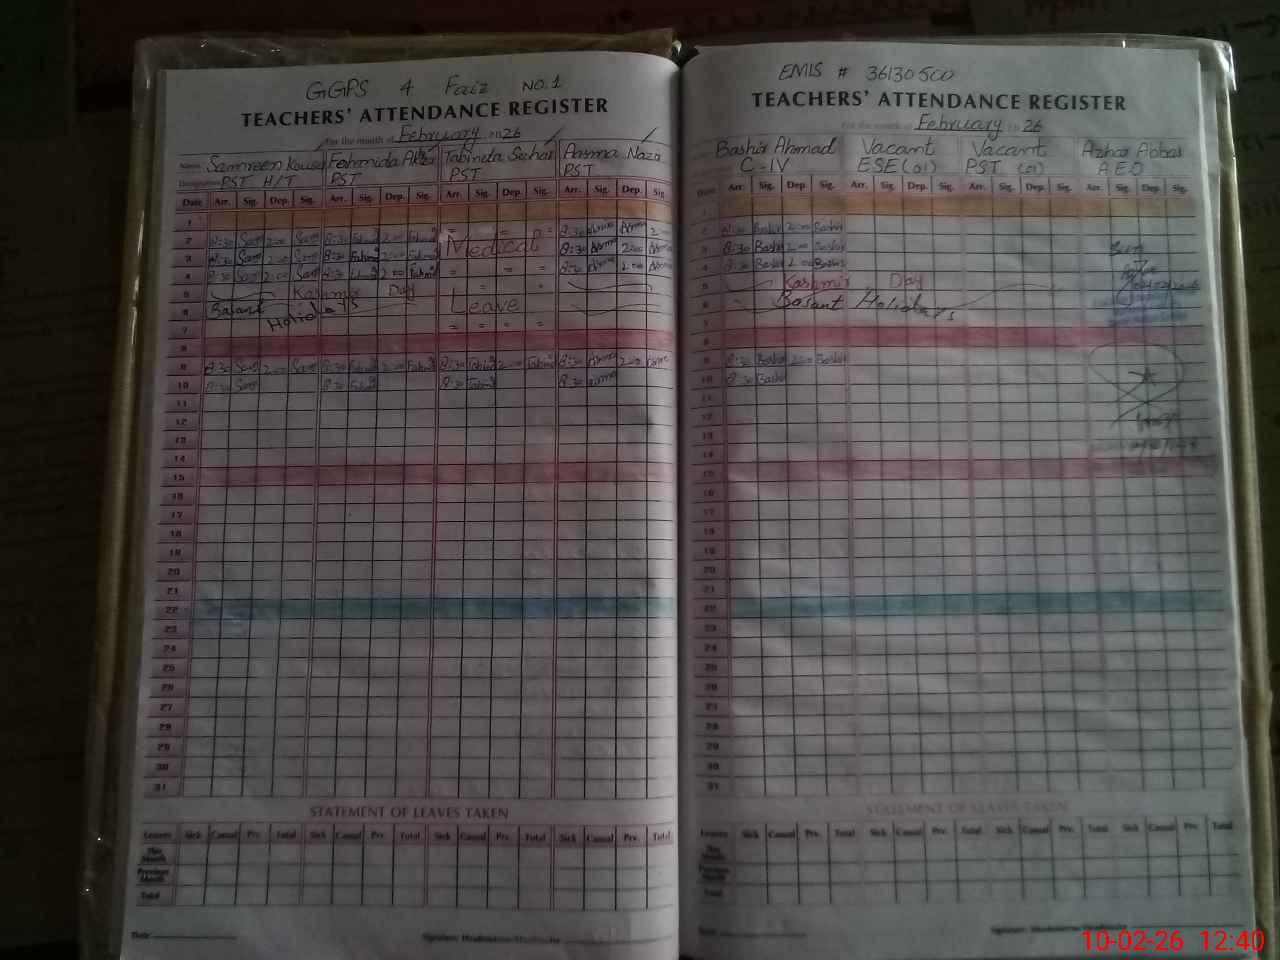 GGPS 4 Faiz NO.1
TEACHERS' ATTENDANCE REGISTER
For the month of February 2026
Name Samreen Kousar Fehmida Akhtar Tabinda Sehar Aasma Nazir
Designation PST H/T PST PST PST
Date Arr. Sig. Dep. Sig. Arr. Sig. Dep. Sig. Arr. Sig. Dep. Sig. Arr. Sig. Dep. Sig.
1
2 8:30 Sam 2:00 Sam 8:30 2:00 8:30 2:00
Medical
3 8:30 Sam 2:00 Sam 8:30 2:00 8:30 2:00
4 8:30 Sam 2:00 Sam 8:30 2:00 8:30 2:00
5 Kashmir Day
6 Basant Holidays Leave
7
8
9 8:30 Sam 2:00 Sam 8:30 2:00 8:30 2:00 8:30 2:00
10 8:30 Sam 8:30 8:30 8:30
11
12
13
14
15
16
17
18
19
20
21
22
23
24
25
26
27
28
29
30
31
STATEMENT OF LEAVES TAKEN
Leaves Sick Casual Prv. Total Sick Casual Prv. Total Sick Casual Prv. Total Sick Casual Prv. Total
This Month
Previous Month
Total
Date
Signature Headmistress/Headmaster
EMIS # 36130500
TEACHERS' ATTENDANCE REGISTER
For the month of February 2026
Bashir Ahmad Vacant Vacant Azhar Abbas
C-IV ESE (01) PST (01) AEO
Date Arr. Sig. Dep. Sig. Arr. Sig. Dep. Sig. Arr. Sig. Dep. Sig. Arr. Sig. Dep. Sig.
1
2 8:30 Bashir 2:00 Bashir
3 8:30 Bashir 2:00 Bashir
4 8:30 Bashir 2:00 Bashir
5 Kashmir Day
6 Basant Holidays
7
8
9 8:30 Bashir 2:00 Bashir
10 8:30 Bashir
11
12
13
14
15
16
17
18
19
20
21
22
23
24
25
26
27
28
29
30
31
STATEMENT OF LEAVES TAKEN
Leaves Sick Casual Prv. Total Sick Casual Prv. Total Sick Casual Prv. Total Sick Casual Prv. Total
This Month
Previous Month
Total
Date
10-02-26 12:40